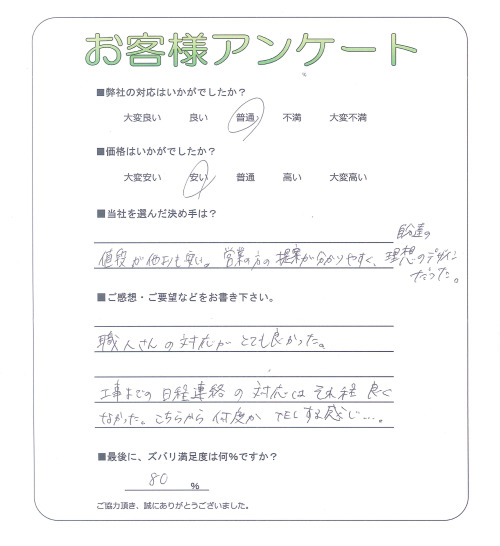 お客様アンケート
■弊社の対応はいかがでしたか？
大変良い 良い 普通 不満 大変不満
■価格はいかがでしたか？
大変安い 安い 普通 高い 大変高い
■当社を選んだ決め手は？
値段が他よりも安い。営業の方の提案が分かりやすく、私達の
理想のデザイン
だった。
■ご感想・ご要望などをお書き下さい。
職人さんの対応がとても良かった。
工事までの日程連絡の対応はそれ程良く
なかった。こちらから何度かTELする感じ…。
■最後に、ズバリ満足度は何％ですか？
80 ％
ご協力頂き、誠にありがとうございました。